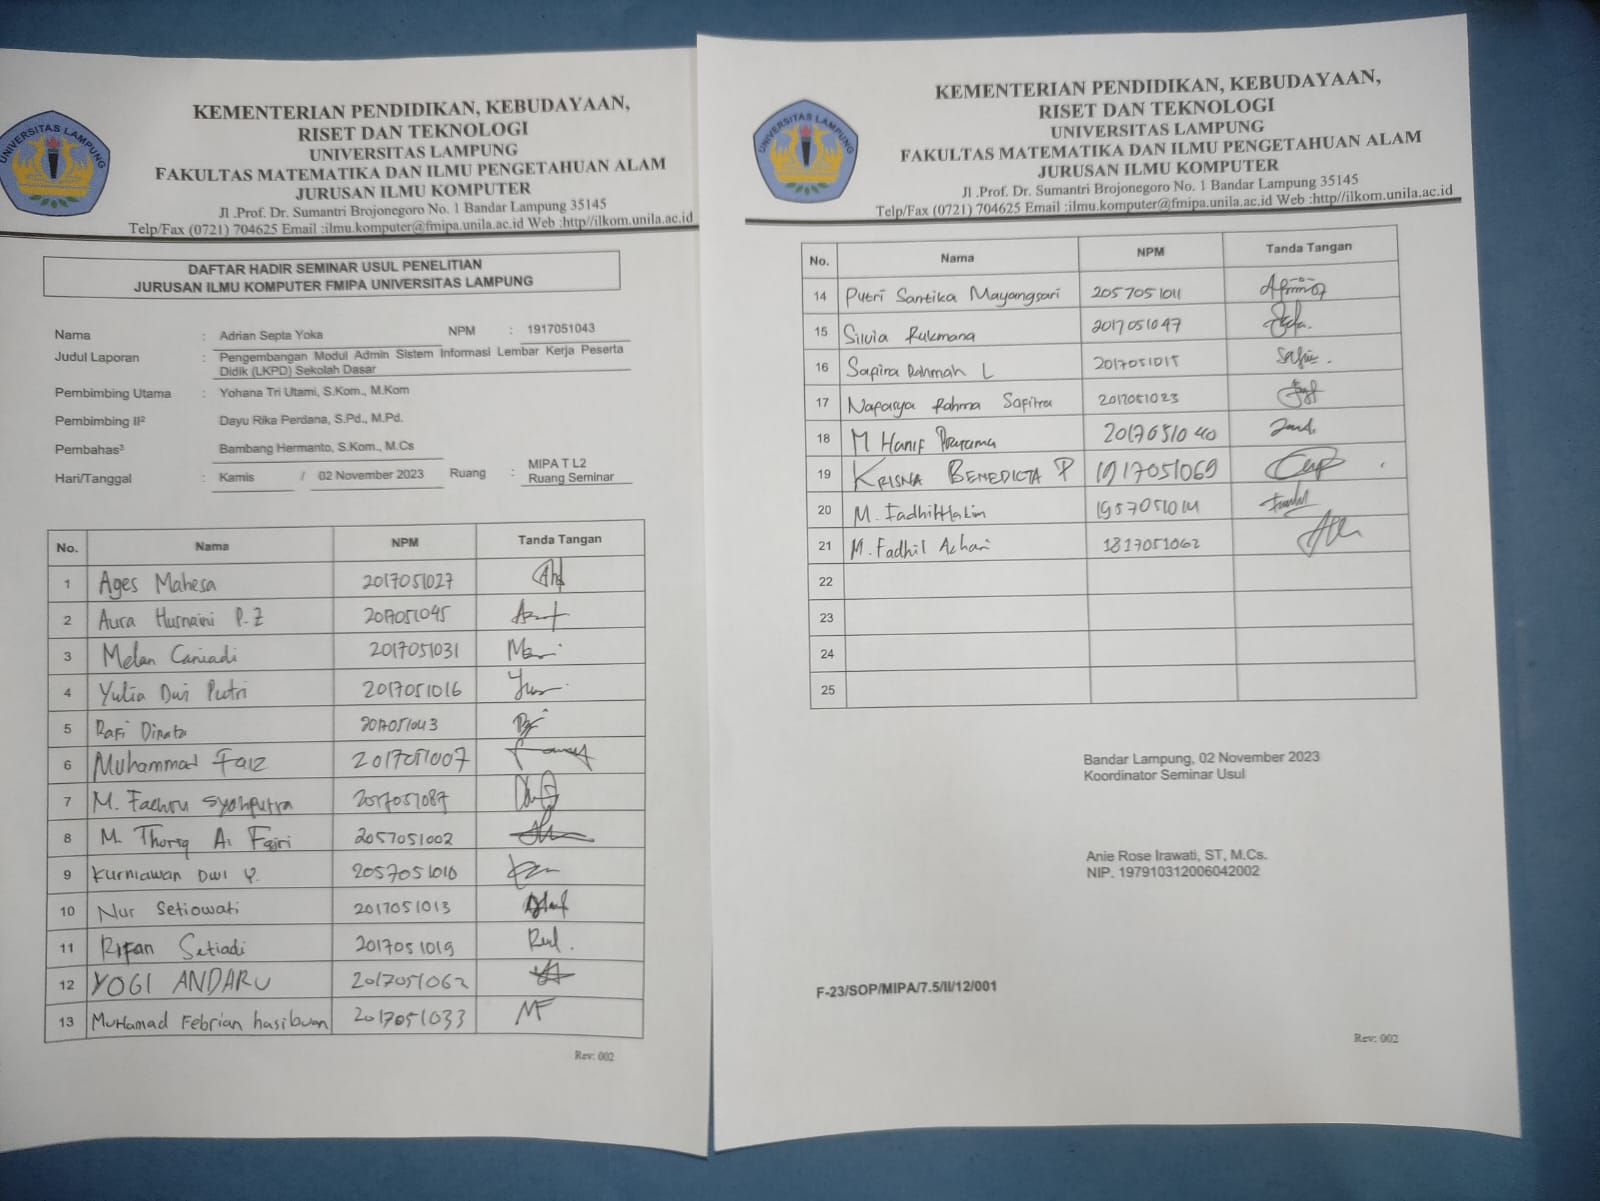 UNIVERSITAS LAMPUNG
KEMENTERIAN PENDIDIKAN, KEBUDAYAAN,
RISET DAN TEKNOLOGI
UNIVERSITAS LAMPUNG
FAKULTAS MATEMATIKA DAN ILMU PENGETAHUAN ALAM
JURUSAN ILMU KOMPUTER
Jl .Prof. Dr. Sumantri Brojonegoro No. 1 Bandar Lampung 35145
Telp/Fax (0721) 704625 Email :ilmu.komputer@fmipa.unila.ac.id Web :http//ilkom.unila.ac.id
DAFTAR HADIR SEMINAR USUL PENELITIAN
JURUSAN ILMU KOMPUTER FMIPA UNIVERSITAS LAMPUNG
Nama : Adrian Septa Yoka NPM : 1917051043
Judul Laporan : Pengembangan Modul Admin Sistem Informasi Lembar Kerja Peserta
Didik (LKPD) Sekolah Dasar
Pembimbing Utama : Yohana Tri Utami, S.Kom., M.Kom
Pembimbing II² : Dayu Rika Perdana, S.Pd., M.Pd.
Pembahas³ : Bambang Hermanto, S.Kom., M.Cs
Hari/Tanggal : Kamis / 02 November 2023 Ruang : MIPA T L2
Ruang Seminar
No. Nama NPM Tanda Tangan
1 Ages Mahesa 2017051027
2 Aura Husnaini P.Z 2017051045
3 Melan Caniadi 2017051031
4 Yulia Dwi Putri 2017051016
5 Rafi Dinata 2017051043
6 Muhammad Faiz 2017051007
7 M. Fachru Syahputra 2017051087
8 M. Thoriq Al Fajri 2057051002
9 Kurniawan Dwi Y. 2057051010
10 Nur Setiowati 2017051013
11 Rifan Setiadi 2017051019
12 YOGI ANDARU 2017051062
13 Muhamad Febrian hasibuan 2017051033 MF
Rev: 002
UNIVERSITAS LAMPUNG
KEMENTERIAN PENDIDIKAN, KEBUDAYAAN,
RISET DAN TEKNOLOGI
UNIVERSITAS LAMPUNG
FAKULTAS MATEMATIKA DAN ILMU PENGETAHUAN ALAM
JURUSAN ILMU KOMPUTER
Jl .Prof. Dr. Sumantri Brojonegoro No. 1 Bandar Lampung 35145
Telp/Fax (0721) 704625 Email :ilmu.komputer@fmipa.unila.ac.id Web :http//ilkom.unila.ac.id
No. Nama NPM Tanda Tangan
14 Putri Santika Mayangsari 2057051011
15 Silvia Rukmana 2017051047
16 Safira Rahmah L 2017051015
17 Nafasya Rahma Safitra 2017051023
18 M Hanif Pratama 2017051040
19 KRISNA BENEDICTA P 1917051069
20 M. Fadhil Hakim 1957051014
21 M. Fadhil Azhari 1817051062
22
23
24
25
Bandar Lampung, 02 November 2023
Koordinator Seminar Usul
Anie Rose Irawati, ST, M.Cs.
NIP. 197910312006042002
F-23/SOP/MIPA/7.5/II/12/001
Rev: 002